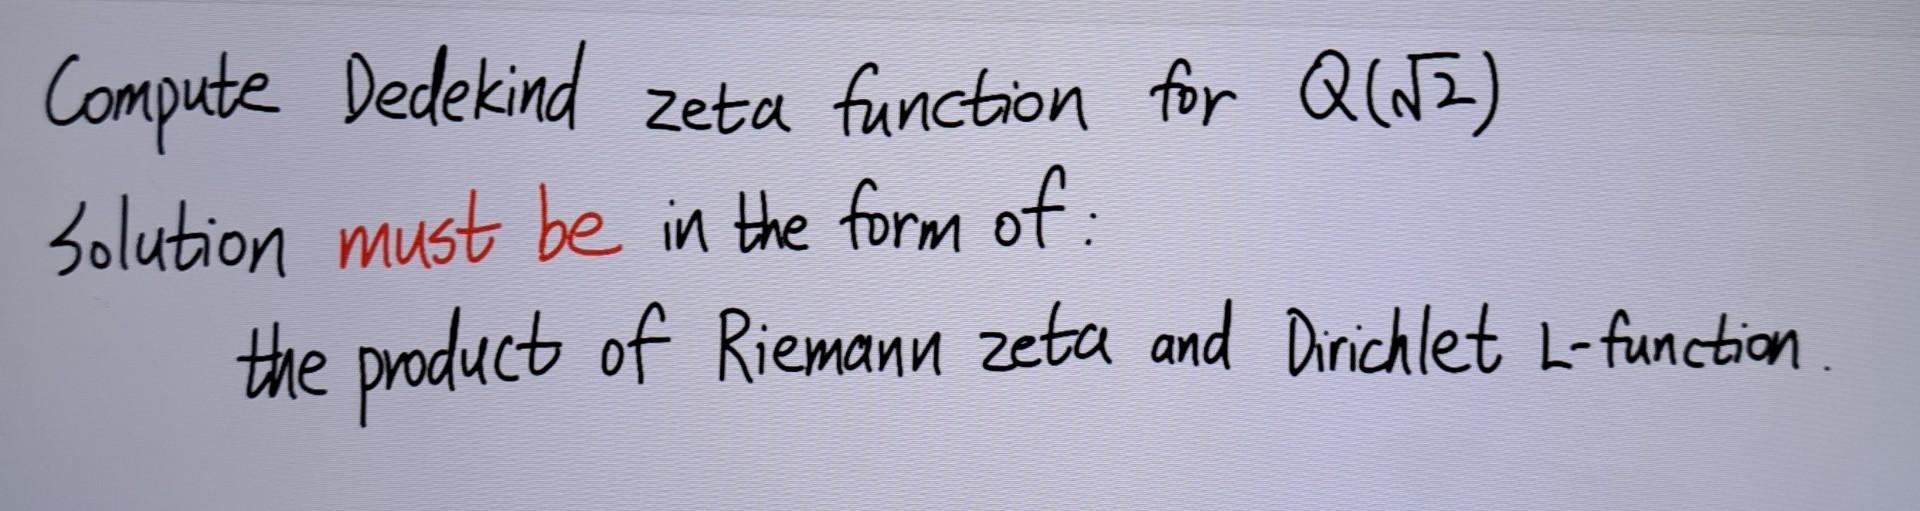 Compute Dedekind zeta function for Q(√2)
Solution must be in the form of :
the product of Riemann zeta and Dirichlet L-function.